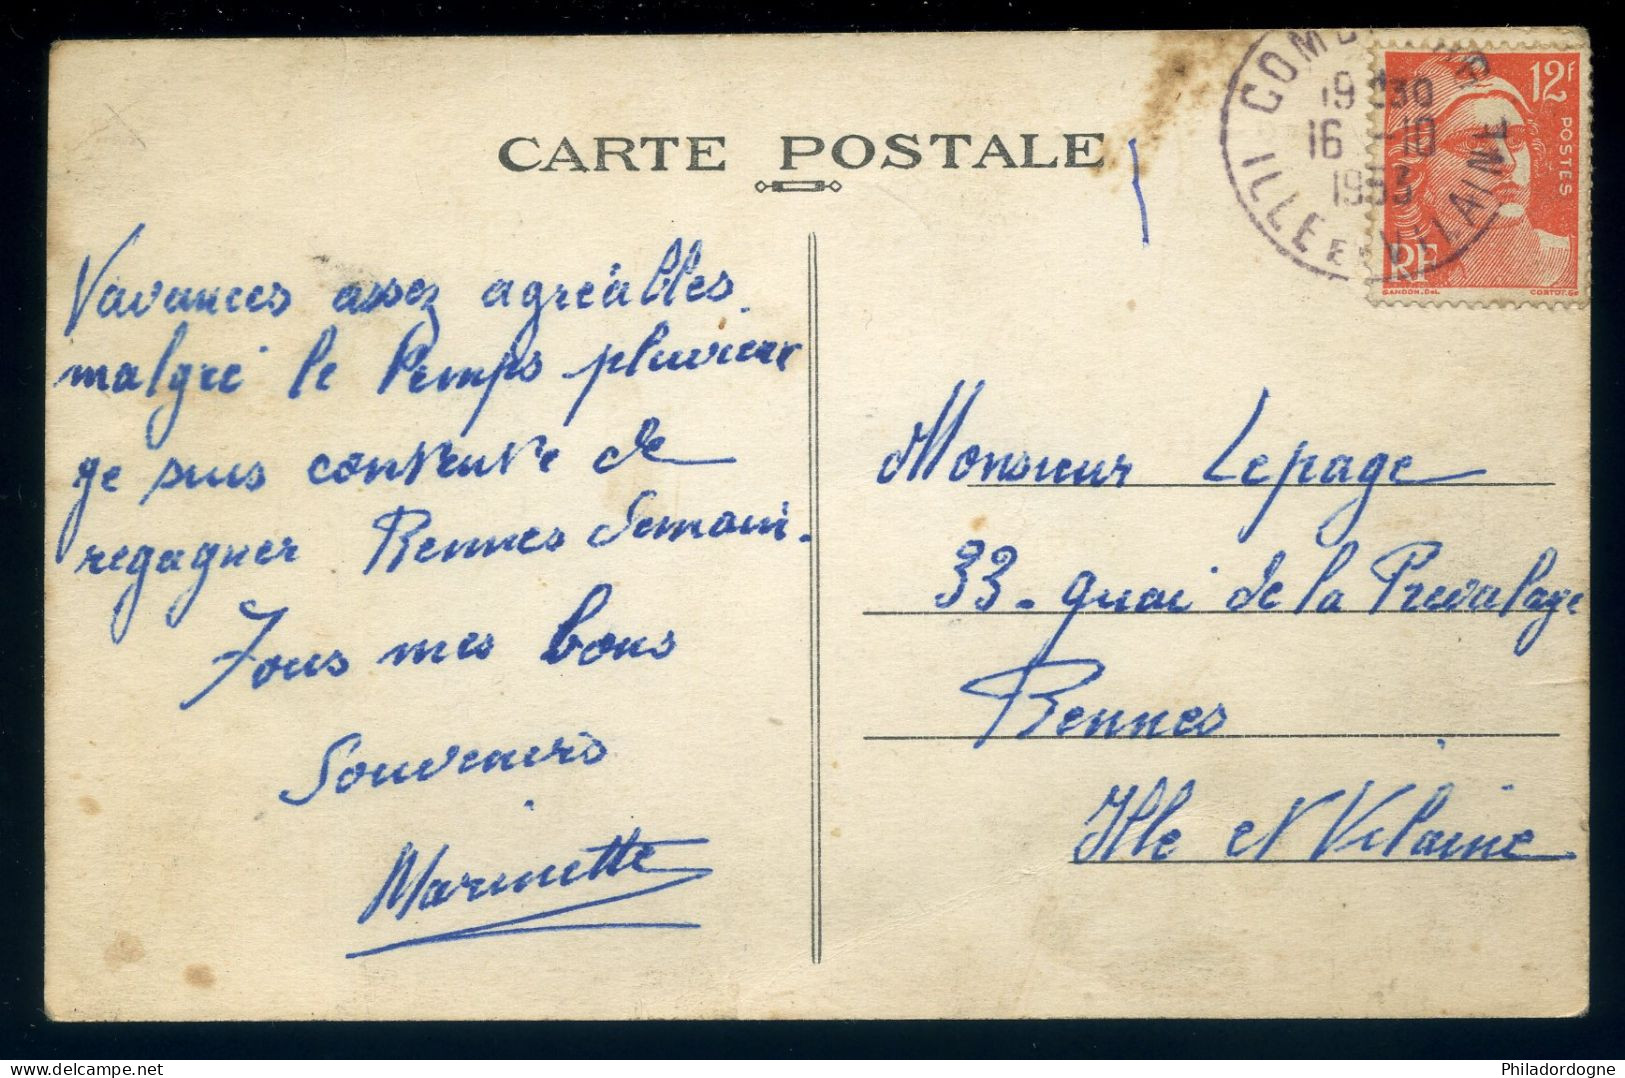 CARTE POSTALE
Vavances assez agréables
malgré le temps pluvieux
je suis contente de
regagner Rennes demain.
Tous mes bons
Souvenirs
Marinette
19 30
16 -10
1953
ILLE ET VILAINE
12F
POSTES
RF
GANDON.DEL
CORTOT.SC
Monsieur Lepage
33 - quai de la Prevalaye
Rennes
Ille et Vilaine
Philadordogne